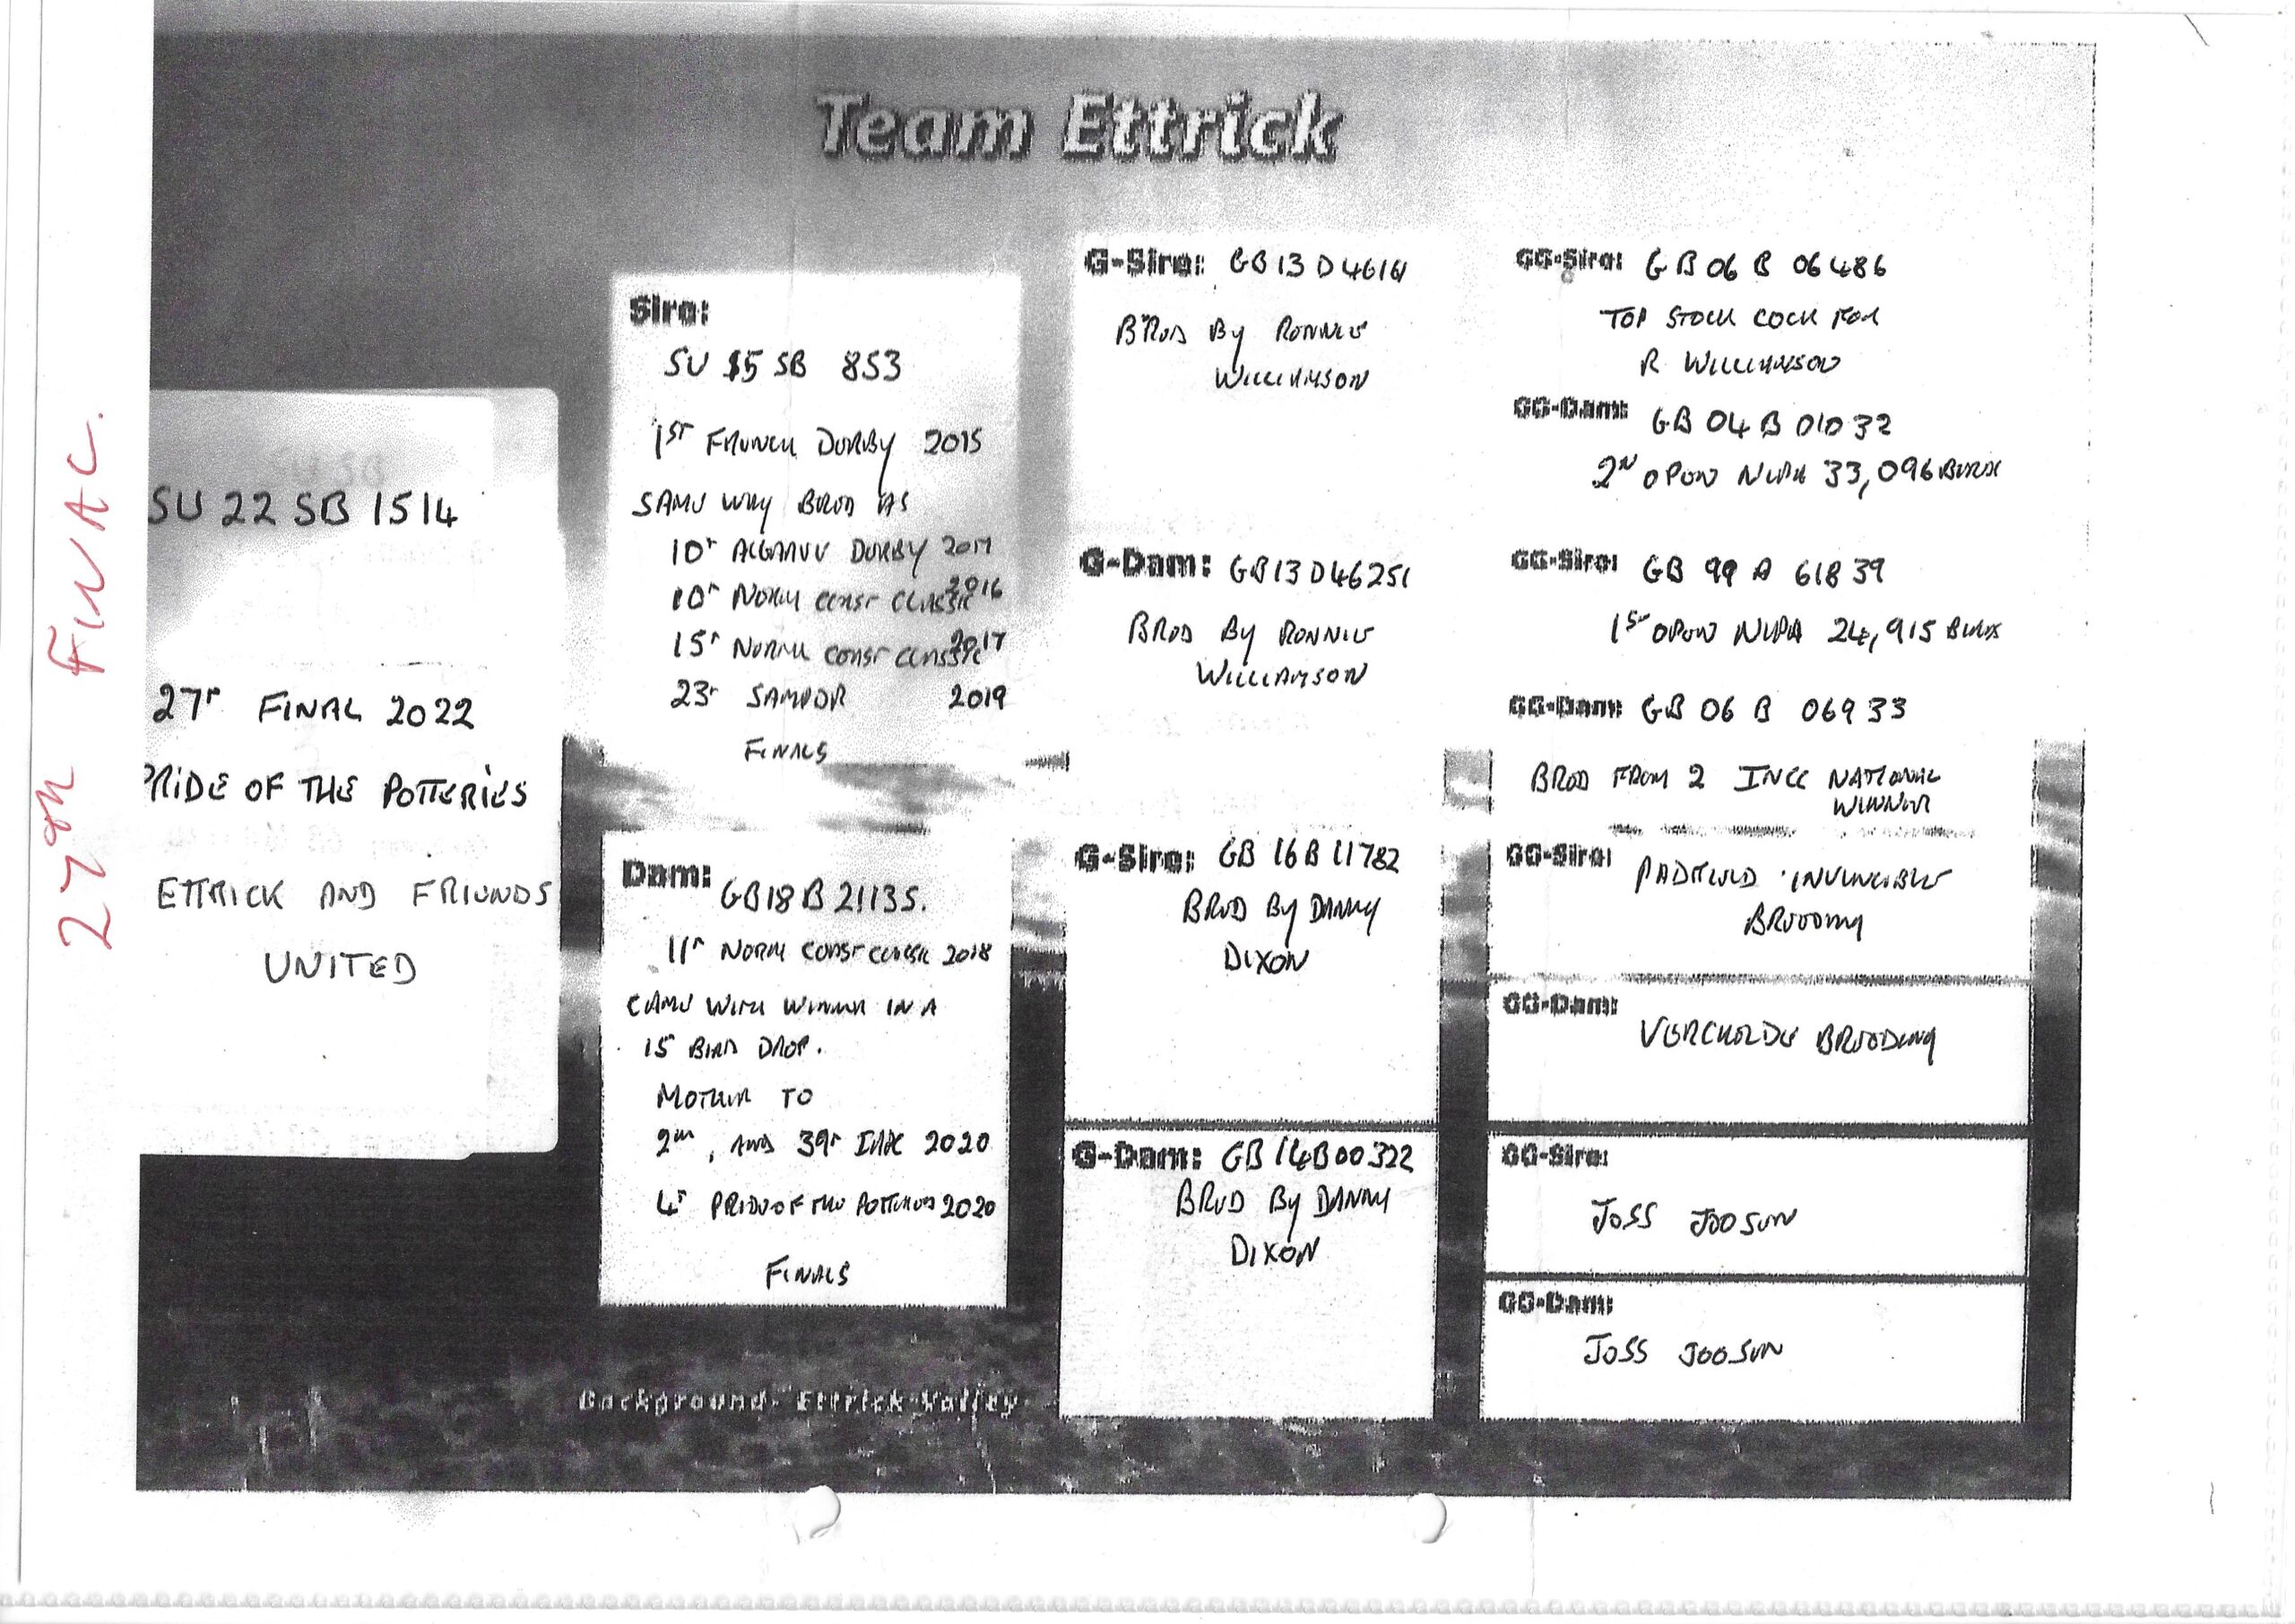 Team Ettrick
27th FINAL.
SU 22 SB 1514
27th FINAL 2022
PRIDE OF THE POTTERIES
ETTRICK AND FRIENDS
UNITED
Sire:
SU 15 SB 853
1ST FRENCH DERBY 2015
SAME WAY BRED AS
10th ALGARVE DERBY
10th NORTH COAST CLASSIC 2016
15th NORTH COAST CLASSIC 2017
23rd SAMDOR 2019
FINALS
Dam:
GB18 B 21135.
11th NORTH COAST CLASSIC 2018
CAME WITH WINNER IN A
15 BIRD DROP.
MOTHER TO
2nd, AND 39th 2020
4th PRIDE OF THE POTTERIES 2020
FINALS
G-Sire: GB 13 D
BRED By RONNIE
WILLIAMSON
G-Dam: GB13 D46251
BRED By RONNIE
WILLIAMSON
G-Sire: GB 16B 11782
BRED By DANNY
DIXON
G-Dam: GB 14B00322
BRED By DANNY
DIXON
GG-Sire: GB 06 B 06486
TOP STOCK COCK FOR
R WILLIAMSON
GG-Dam: GB 04 B 01032
2ND OPEN NIPA 33,096 BIRDS
GG-Sire: GB 99 A 61839
1ST OPEN NIPA 24,915 BIRDS
GG-Dam: GB 06 B 06933
BRED FROM 2 INCC NATIONAL
WINNER
GG-Sire: PADFIELD INVINCIBLE
BREEDING
GG-Dam:
VERCKOLDE BREEDING
GG-Sire:
JOSS JOOSEN
GG-Dam:
JOSS JOOSEN
Background- Ettrick Valley